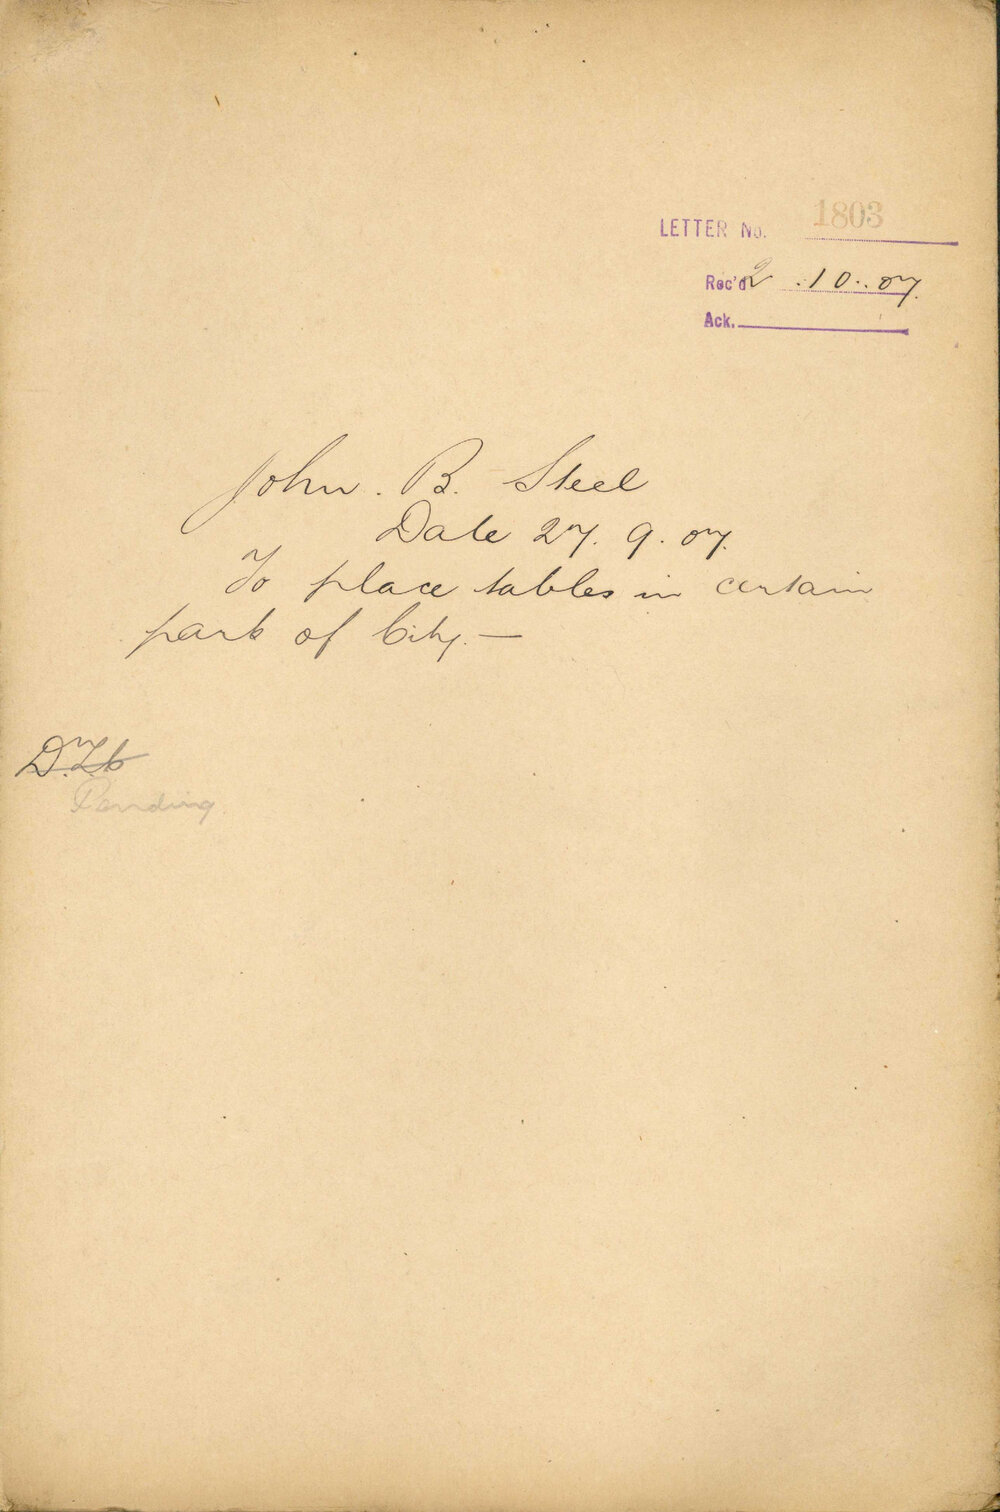 LETTER No. 1803
Rec'd 2.10.07.
Ack.
John. B. Steel
Date 27.9.07.
To place tables in certain
park of City.—
Pending